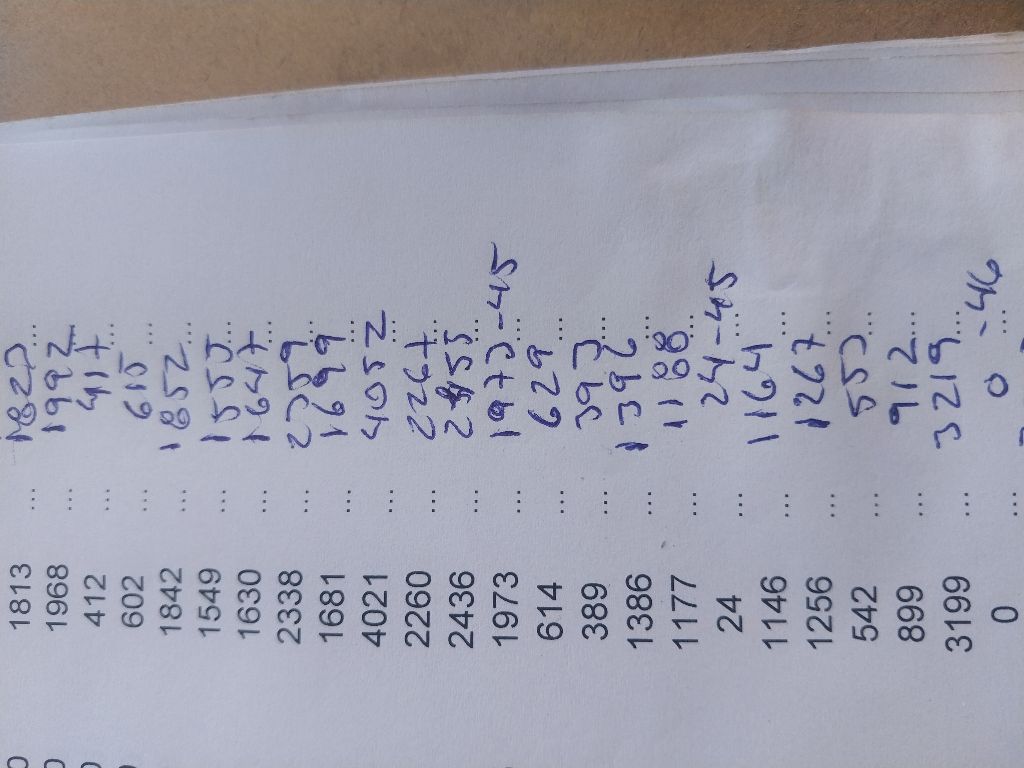 1813 ... 1823...
1968 ... 1992...
412 ... 417...
602 ... 615 ...
1842 ... 1852 ...
1549 ... 1553...
1630 ... 1647...
2338 ... 2359...
1681 ... 1699...
4021 ... 4052...
2260 ... 2267...
2436 ... 2455...
1973 ... 1973-45
614 ... 629 ...
389 ... 393...
1386 ... 1396...
1177 ... 1188...
24 ... 24-45
1146 ... 1164...
1256 ... 1267...
542 ... 553...
899 ... 912...
3199 ... 3219...
0 ... 0 -46